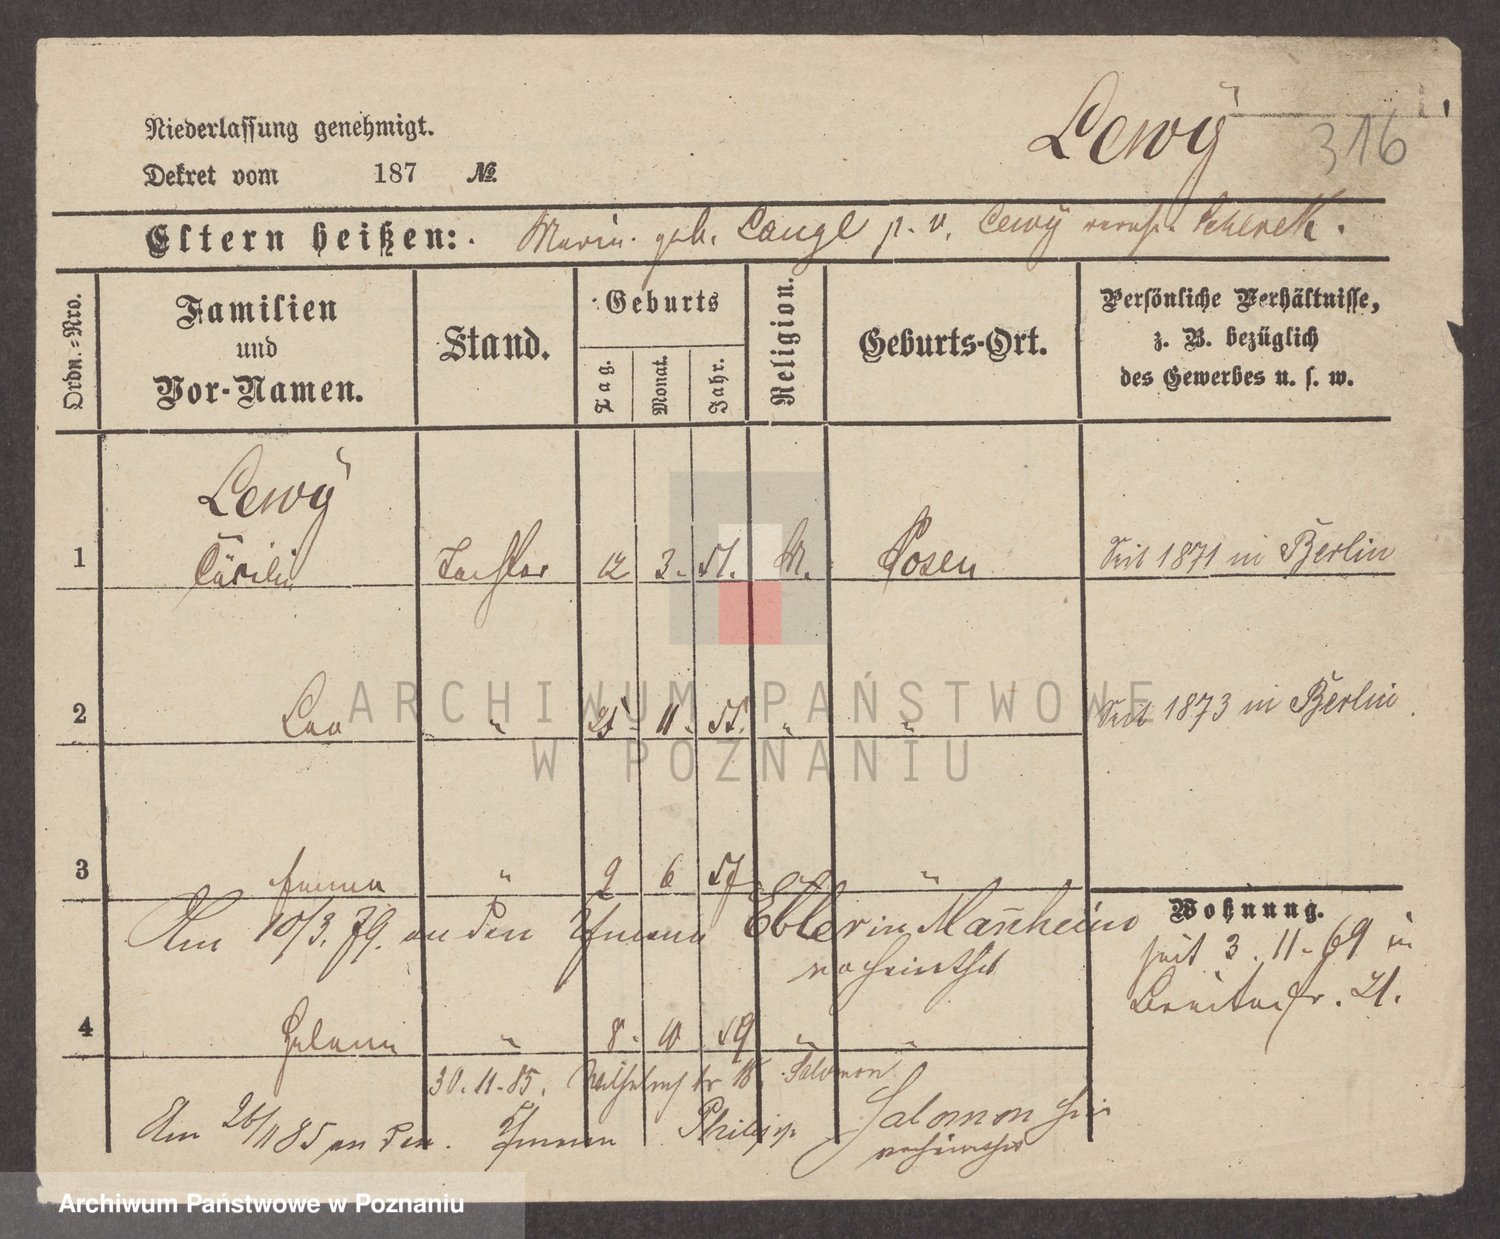 Lewÿ
316
Niederlassung genehmigt.
Dekret vom 187 №.
Eltern heißen: Marie geb. Lange p. v. Lewÿ
Ordn.=Nro.
Familien und Vor-Namen.
Stand.
Geburts
Tag.
Monat.
Jahr.
Religion.
Geburts-Ort.
Persönliche Verhältnisse,
z. B. bezüglich
des Gewerbes u. s. w.
Lewÿ
1 Cäcilie Tochter 12 3. 51. M. Posen Seit 1871 in Berlin
2 Lea " 25. 11. 55. " " Seit 1873 in Berlin.
3 Emma " 9 6 57 "
Am 10/3. 79. an den Kfmann in Mañheim
verheirathet
Wohnung.
seit 3. 11. 69 in
Breitestr. 21.
4 Helene " 8. 10 59 " "
30. 11. 85. Wilhelmstr 18. Salomon
Am 26/11 85 an den Kfmann Philipp Salomon hier
verheirathet
ARCHIWUM PAŃSTWOWE
W POZNANIU
Archiwum Państwowe w Poznaniu